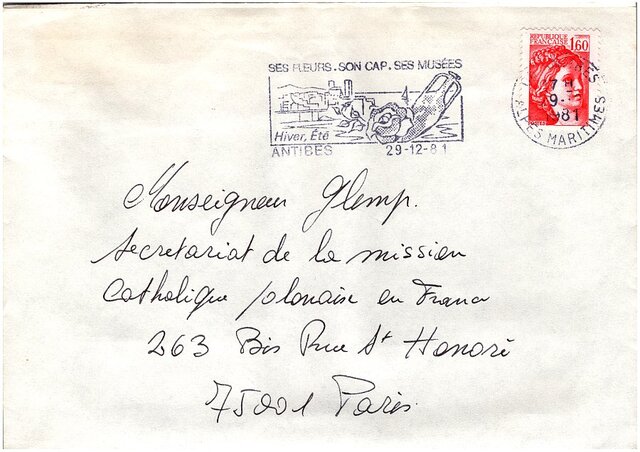 SES FLEURS. SON CAP. SES MUSÉES
Hiver, Été
ANTIBES 29-12-81
REPUBLIQUE
FRANÇAISE 1,60
7H
9-
1981
ALPES MARITIMES
Monseigneur Glemp.
Secretariat de la mission
Catholique polonaise en France
263 Bis Rue St Honoré
75001 Paris